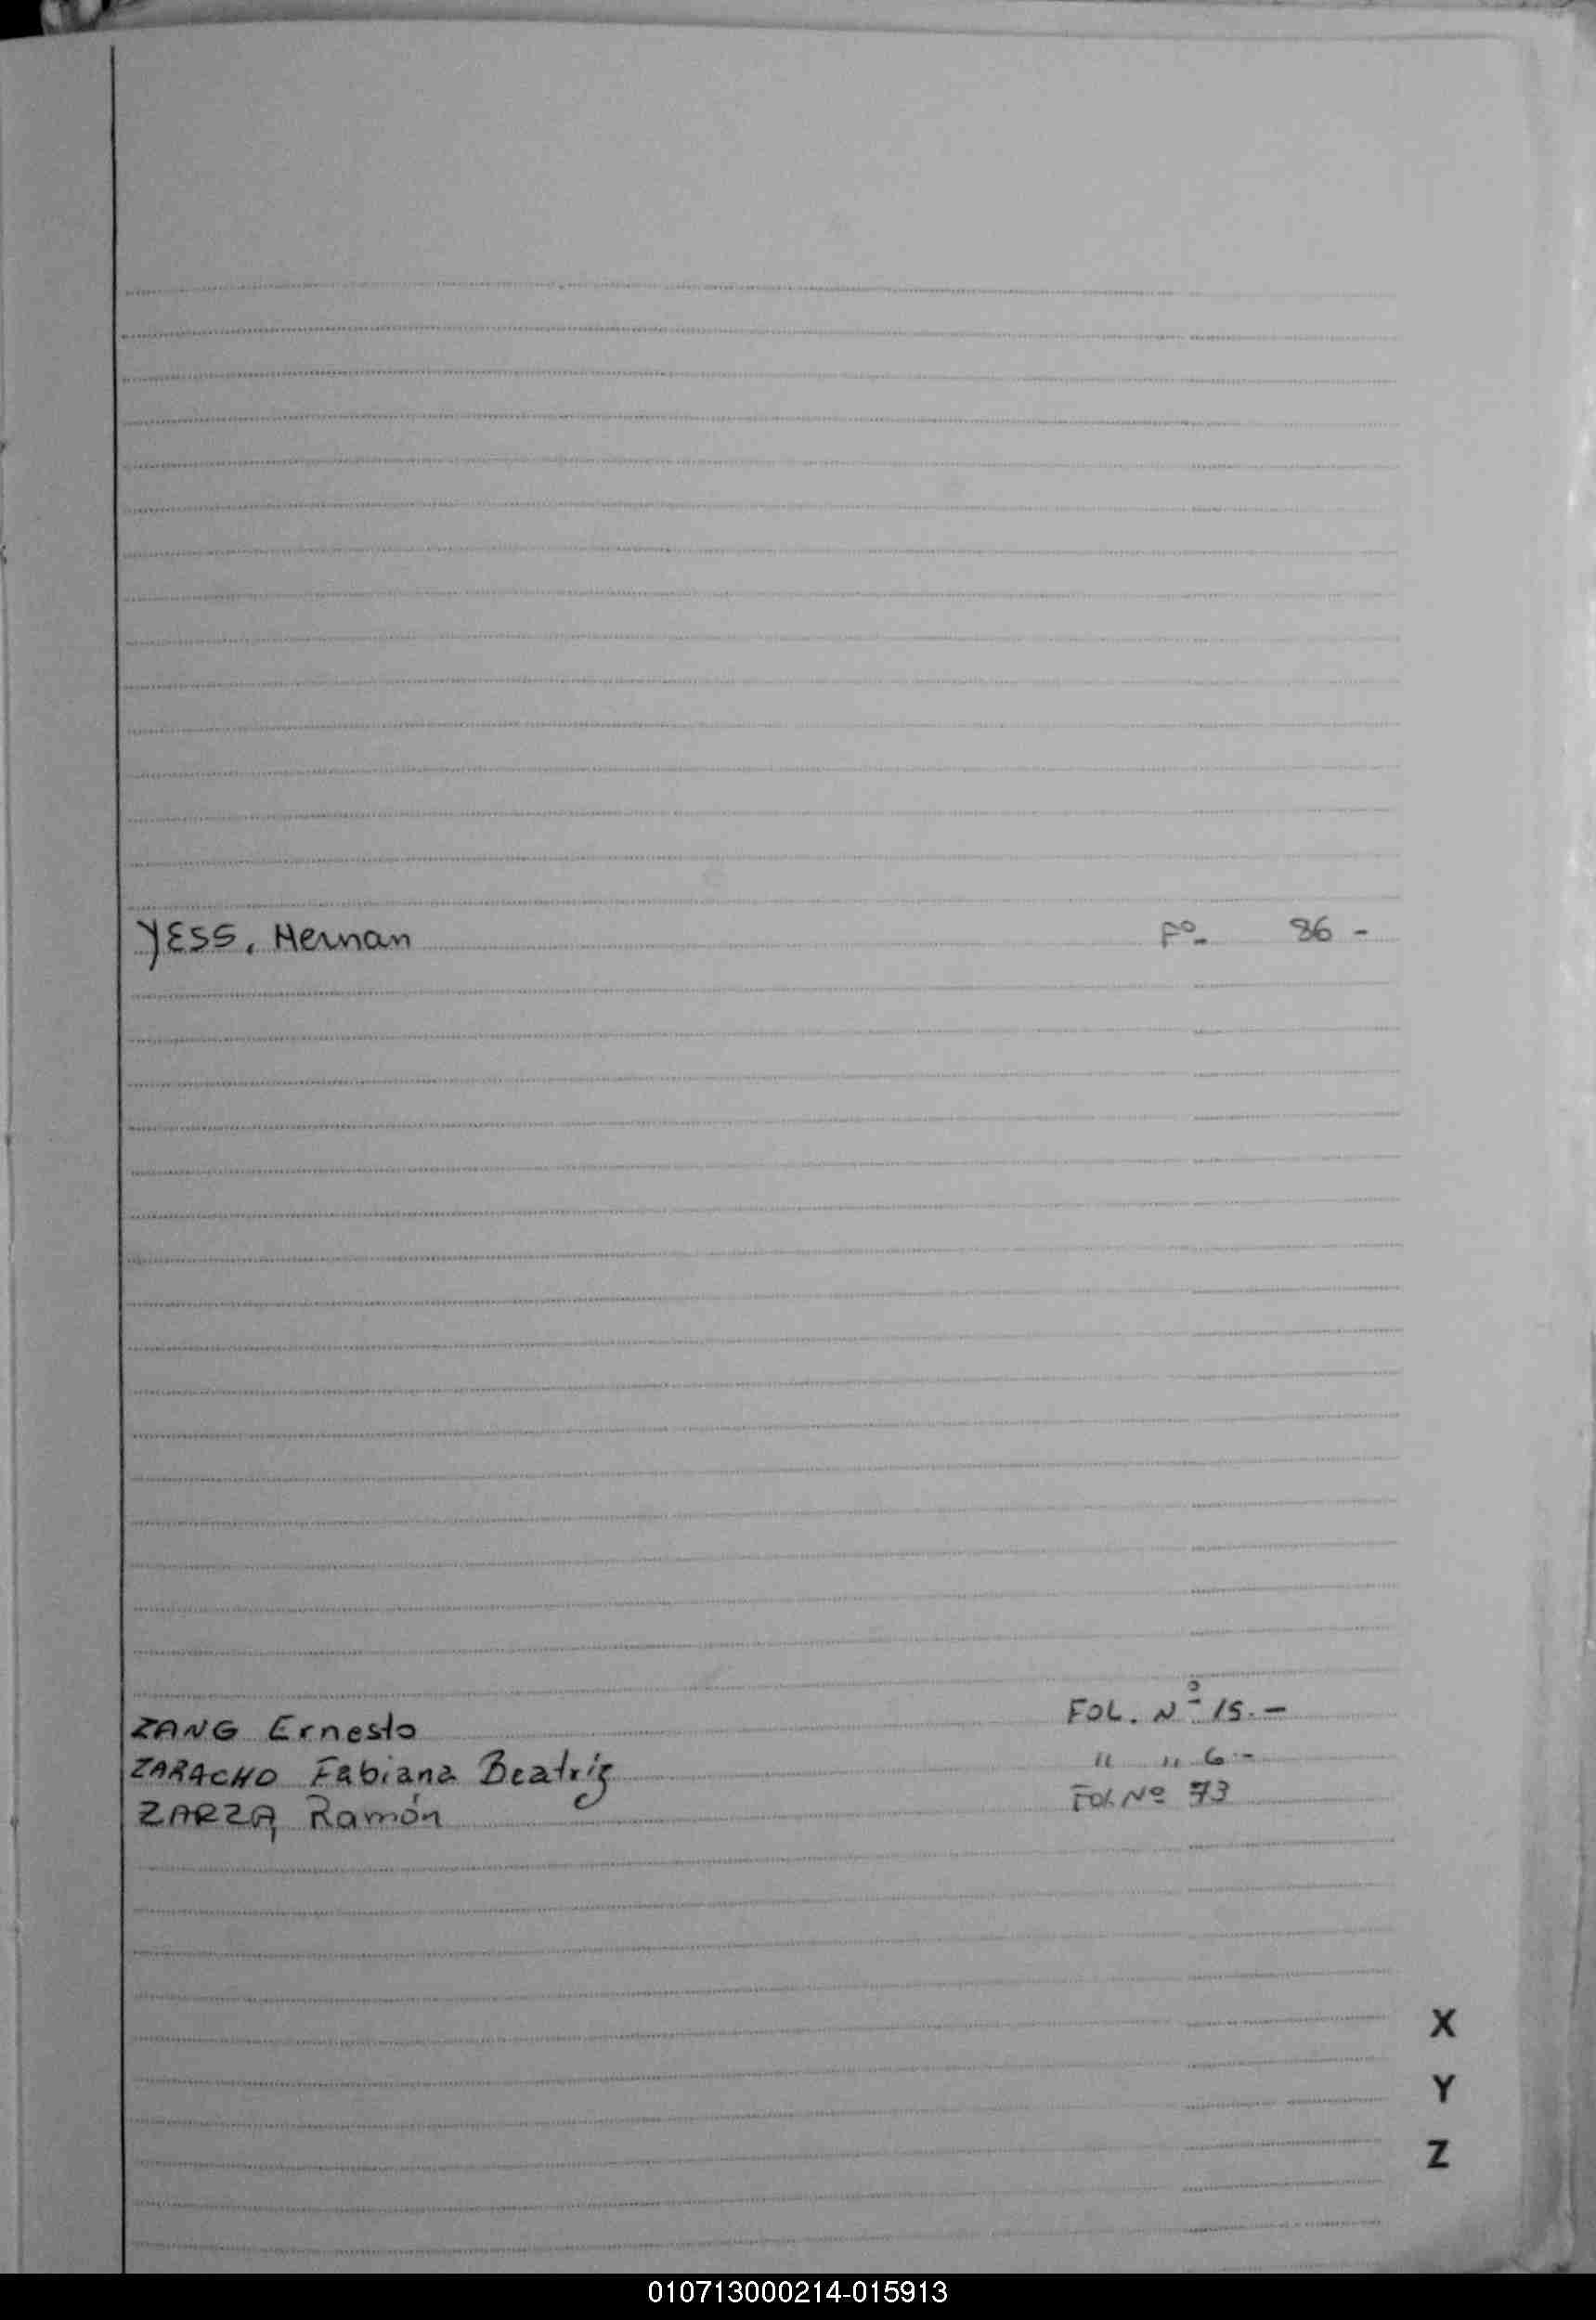 YESS, Hernan Fº 86 -
ZANG Ernesto FOL. Nº 15. -
ZARACHO Fabiana Beatriz " " 6 -
ZARZA, Ramón Fol. Nº 73
X
Y
Z
010713000214-015913